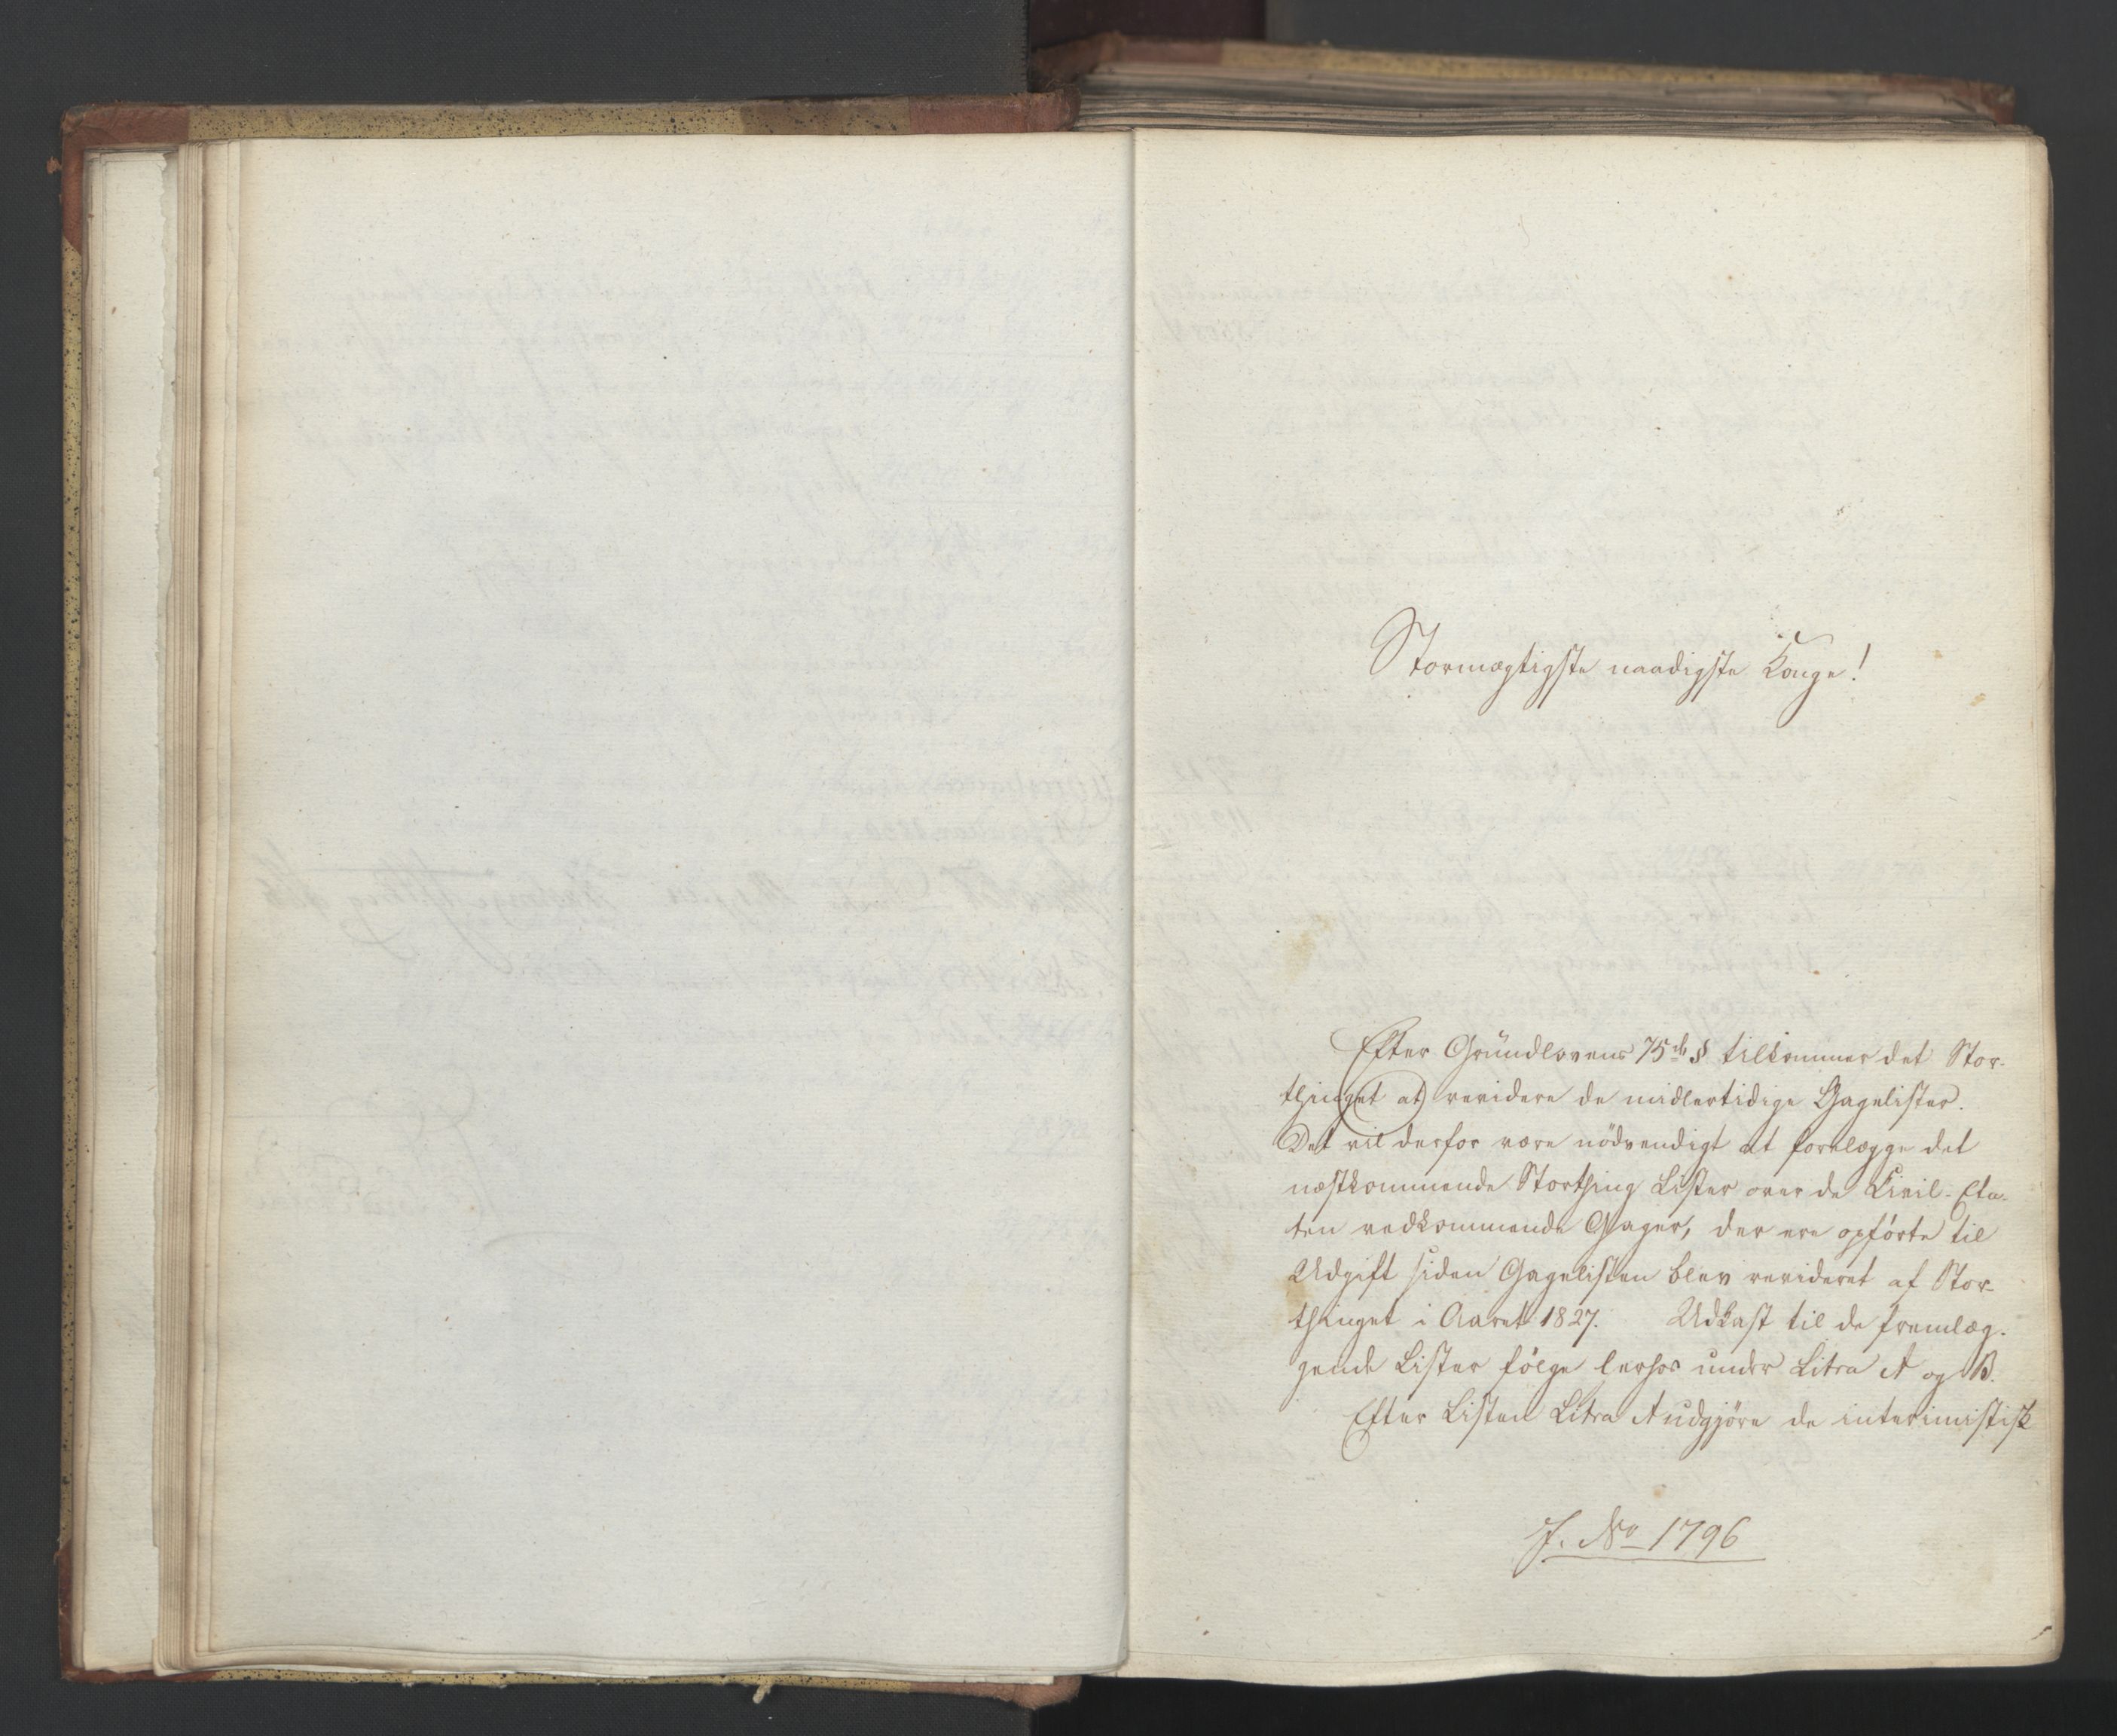 Stormægtigste naadigste Konge!
Efter Grundlovens 75de § tilkommer det Stor-
thinget at revidere de midlertidige Gagelister.
Det vil derfor være nödvendigt at forelægge det
næstkommende Storthing Lister over de Civil-Eta-
ten vedkommende Gager, der ere opförte til
Udgift siden Gagelisten blev revideret af Stor-
thinget i Aaret 1827. Udkast til de fremlæg-
gende Lister fölge herhos under Litra A og B.
Efter Listen Litra A udgjöre de interimistisk
J. No 1796